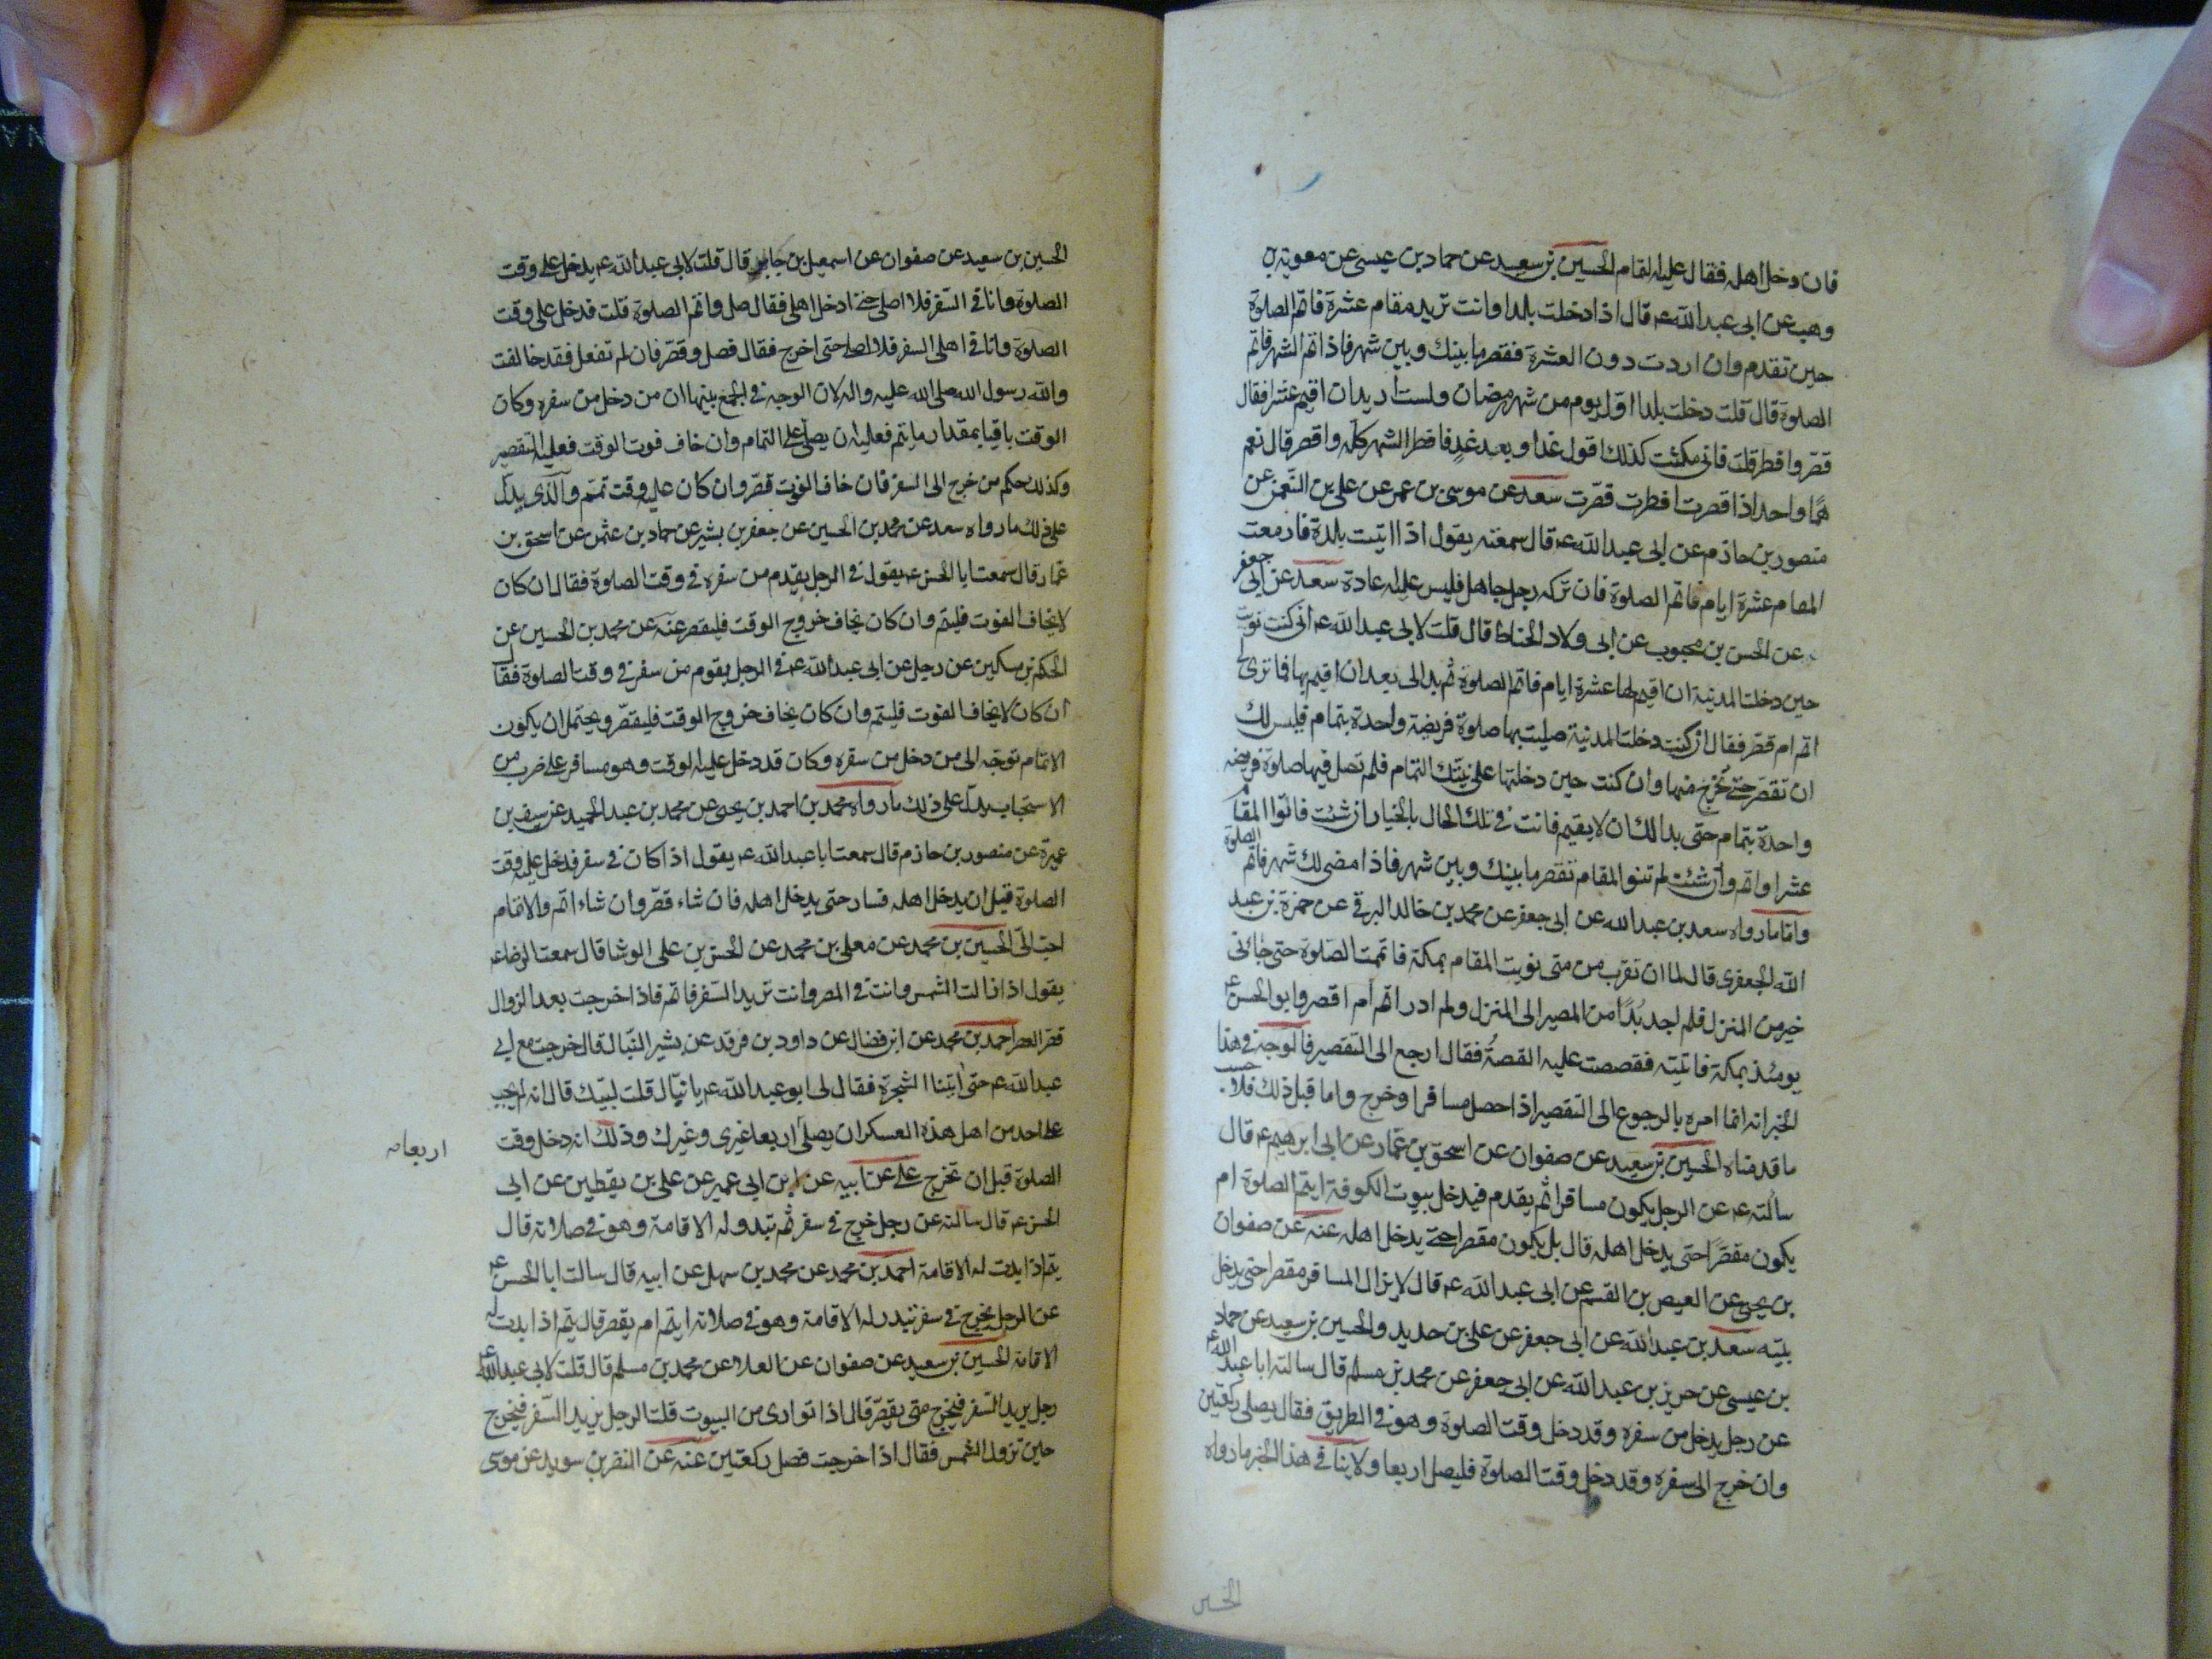 فان دخل اهله فقال عليه التمام الحسين بن سعيد عن حماد بن عيسى عن معوية بن
وهب عن ابى عبدالله ع قال اذا دخلت بلدا وانت تريد مقام عشرة فاتم الصلوة
حين تقدم وان اردت دون العشرة فقصر ما بينك وبين شهر فاذا تم الشهر فاتم
الصلوة قال قلت دخلت بلدا اول يوم من شهر رمضان ولست اريد ان اقيم عشرا فقال
قصر وافطر قلت فانى مكثت كذلك اقول غدا وبعد غد فافطر الشهر كله واقصر قال نعم
هما واحد اذا قصرت افطرت قصرت سعد عن موسى بن عمر عن على بن النعمن عن
منصور بن حازم عن ابى عبدالله ع قال سمعته يقول اذا اتيت بلدة فازمعت
المقام عشرة ايام فاتم الصلوة فان تركه رجل جاهل فليس عليه عادة سعد عن ابى جعفر
عن الحسن بن محبوب عن ابى ولاد الحناط قال قلت لابى عبدالله ع انى كنت نويت
حين دخلت المدينة ان اقيم بها عشرة ايام فاتم الصلوة ثم بدا لى بعد ان اقيم بها فما ترى لى
اتم ام قصر فقال ان كنت دخلت المدينة صليت بها صلوة فريضة واحدة بتمام فليس لك
ان تقصر حتى تخرج منها وان كنت حين دخلتها على نيتك التمام فلم تصل فيها صلوة فريضه
واحدة بتمام حتى بدا لك ان لا يقيم فانت فى تلك الحال بالخيار ان شئت فانوا المقام
عشرا واتم وان شئت لم تنو المقام تقصر ما بينك وبين شهر فاذا مضى لك شهر فاتم الصلوة
واما ما رواه سعد بن عبدالله عن ابى جعفر عن محمد بن خالد البرقى عن حمزة بن عبد
الله الجعفرى قال لما ان تقرب من متى نويت المقام بمكة فاتممت الصلوة حتى جائنى
خبر من المنزل فلم اجد بدا من المصير الى المنزل ولم ادر اتم ام اقصر وابو الحسن ع
يومئذ بمكة فاتيته فقصصت عليه القصة فقال ارجع الى التقصير فالوجه فى هذا
الخبر انه انما امره بالرجوع الى التقصير اذا حصل مسافرا وخرج واما قبل ذلك فلا حسب
ما قدمناه الحسين بن سعيد عن صفوان عن اسحق بن عمار عن ابى ابرهيم ع قال
سألته ع عن الرجل يكون مسافرا ثم يقدم فيدخل بيوت الكوفة ايتم الصلوة ام
يكون مقصرا حتى يدخل اهله قال بل يكون مقصرا حتى يدخل اهله عنه عن صفوان
بن يحيى عن العيص بن القسم عن ابى عبدالله ع قال لا يزال المسافر مقصرا حتى يدخل
بيته سعد بن عبدالله عن ابى جعفر عن على بن حديد والحسين بن سعيد عن حماد
بن عيسى عن حريز بن عبدالله عن ابى جعفر عن محمد بن مسلم قال سالت ابا عبد الله ع
عن رجل يدخل من سفره وقد دخل وقت الصلوة وهو فى الطريق فقال يصلى ركعتين
وان خرج الى سفره وقد دخل وقت الصلوة فليصل اربعا ولا ينافى هذا الخبر ما رواه
الحسين
الحسين بن سعيد عن صفوان عن اسمعيل بن جابر قال قلت لابى عبدالله ع يدخل على وقت
الصلوة وانا فى السفر فلا اصلى حتى ادخل اهلى فقال صل واتم الصلوة قلت فدخل على وقت
الصلوة وانا فى اهلى السفر فلا اصلى حتى اخرج فقال فصل وقصر فان لم تفعل فقد خالفت
والله رسول الله صلى الله عليه واله لان الوجه فى الجمع بينها ان من دخل من سفره وكان
الوقت باقيا بمقدار ما يتم فعليه ان يصلى على التمام وان خاف فوت الوقت فعليه التقصير
وكذلك حكم من خرج الى السفر فان خاف الفوت قصر وان كان عليه وقت تمم والذى يدل
على ذلك ما رواه سعد عن محمد بن الحسين عن جعفر بن بشير عن حماد بن عثمن عن اسحق بن
عمار قال سمعت ابا الحسن ع يقول فى الرجل يقدم من سفره فى وقت الصلوة فقال ان كان
لا يخاف الفوت فليتم وان كان يخاف خروج الوقت فليقصر عنه عن محمد بن الحسين عن
الحكم بن مسكين عن رجل عن ابى عبدالله ع فى الرجل يقوم من سفر فى وقت الصلوة فقال
ان كان لا يخاف الفوت فليتم وان كان يخاف خروج الوقت فليقصر ويحتمل ان يكون
الاتمام توجه الى من دخل من سفره وكان قد دخل عليه الوقت وهو مسافر على ضرب من
الاستحباب يدل على ذلك ما رواه محمد بن احمد بن يحيى عن محمد بن عبد الحميد عن سيف بن
عميرة عن منصور بن حازم قال سمعت ابا عبدالله ع يقول اذا كان فى سفر فدخل عليه وقت
الصلوة قبل ان يدخل اهله فسار حتى يدخل اهله فان شاء قصر وان شاء اتم والاتمام
احب الى الحسين بن محمد عن معلى بن محمد عن الحسن بن على الوشا قال سمعت الرضا ع
يقول اذا زالت الشمس وانت فى المصر وانت تريد السفر فاتم فاذا خرجت بعد الزوال
قصر العصر احمد بن محمد عن ابن فضال عن داود بن فرقد عن بشير النبال قال خرجت مع ابى
عبدالله ع حتى اتينا الشجرة فقال لى ابو عبدالله ع يا نبال قلت لبيك قال انه لم يجب
على احد من اهل هذه العسكر ان يصلى اربعا غيرى وغيرك وذلك انه دخل وقت
اربعا
الصلوة قبل ان تخرج على عن ابيه عن ابن ابى عمير عن على بن يقطين عن ابى
الحسن ع قال سالته عن رجل خرج فى سفر ثم تبدو له الاقامة وهو فى صلاته قال
يتم اذا بدت له الاقامة احمد بن محمد عن محمد بن سهل عن ابيه قال سالت ابا الحسن ع
عن الرجل يخرج فى سفر تبدو له الاقامة وهو فى صلاته ايتم ام يقصر قال يتم اذا بدت له
الاقامة الحسين بن سعيد عن صفوان عن العلا عن محمد بن مسلم قال قلت لابى عبدالله ع
رجل يريد السفر فيخرج متى يقصر قال اذا توارى من البيوت قلت الرجل يريد السفر فيخرج
حين تزول الشمس فقال اذا خرجت فصل ركعتين عنه عن النضر بن سويد عن موسى